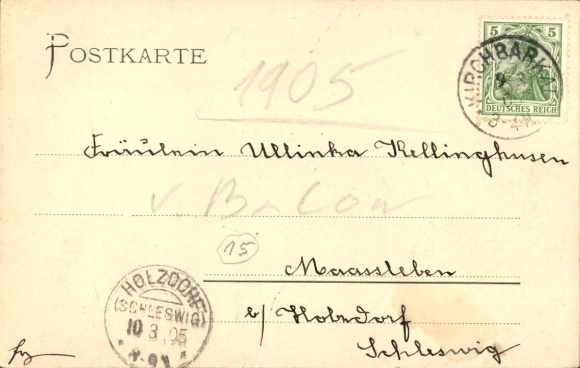 POSTKARTE
1905
5
DEUTSCHES REICH
KIRCHBARKAU
Fräulein Ullinka Kellinghusen
v. B
15
Maassleben
b/ Holzdorf
Schleswig
HOLZDORF
(SCHLESWIG)
10 3 05